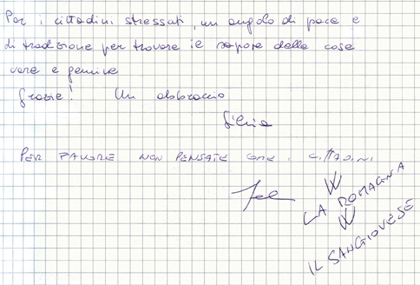 Per i cittadini stressati, un angolo di pace e
di tradizione per trovare il sapore delle cose
vere e genuine
Grazie! Un abbraccio
Silvia
PER FAVORE NON PENSATE COME I CITTADINI
W
LA ROMAGNA
W
IL SANGIOVESE